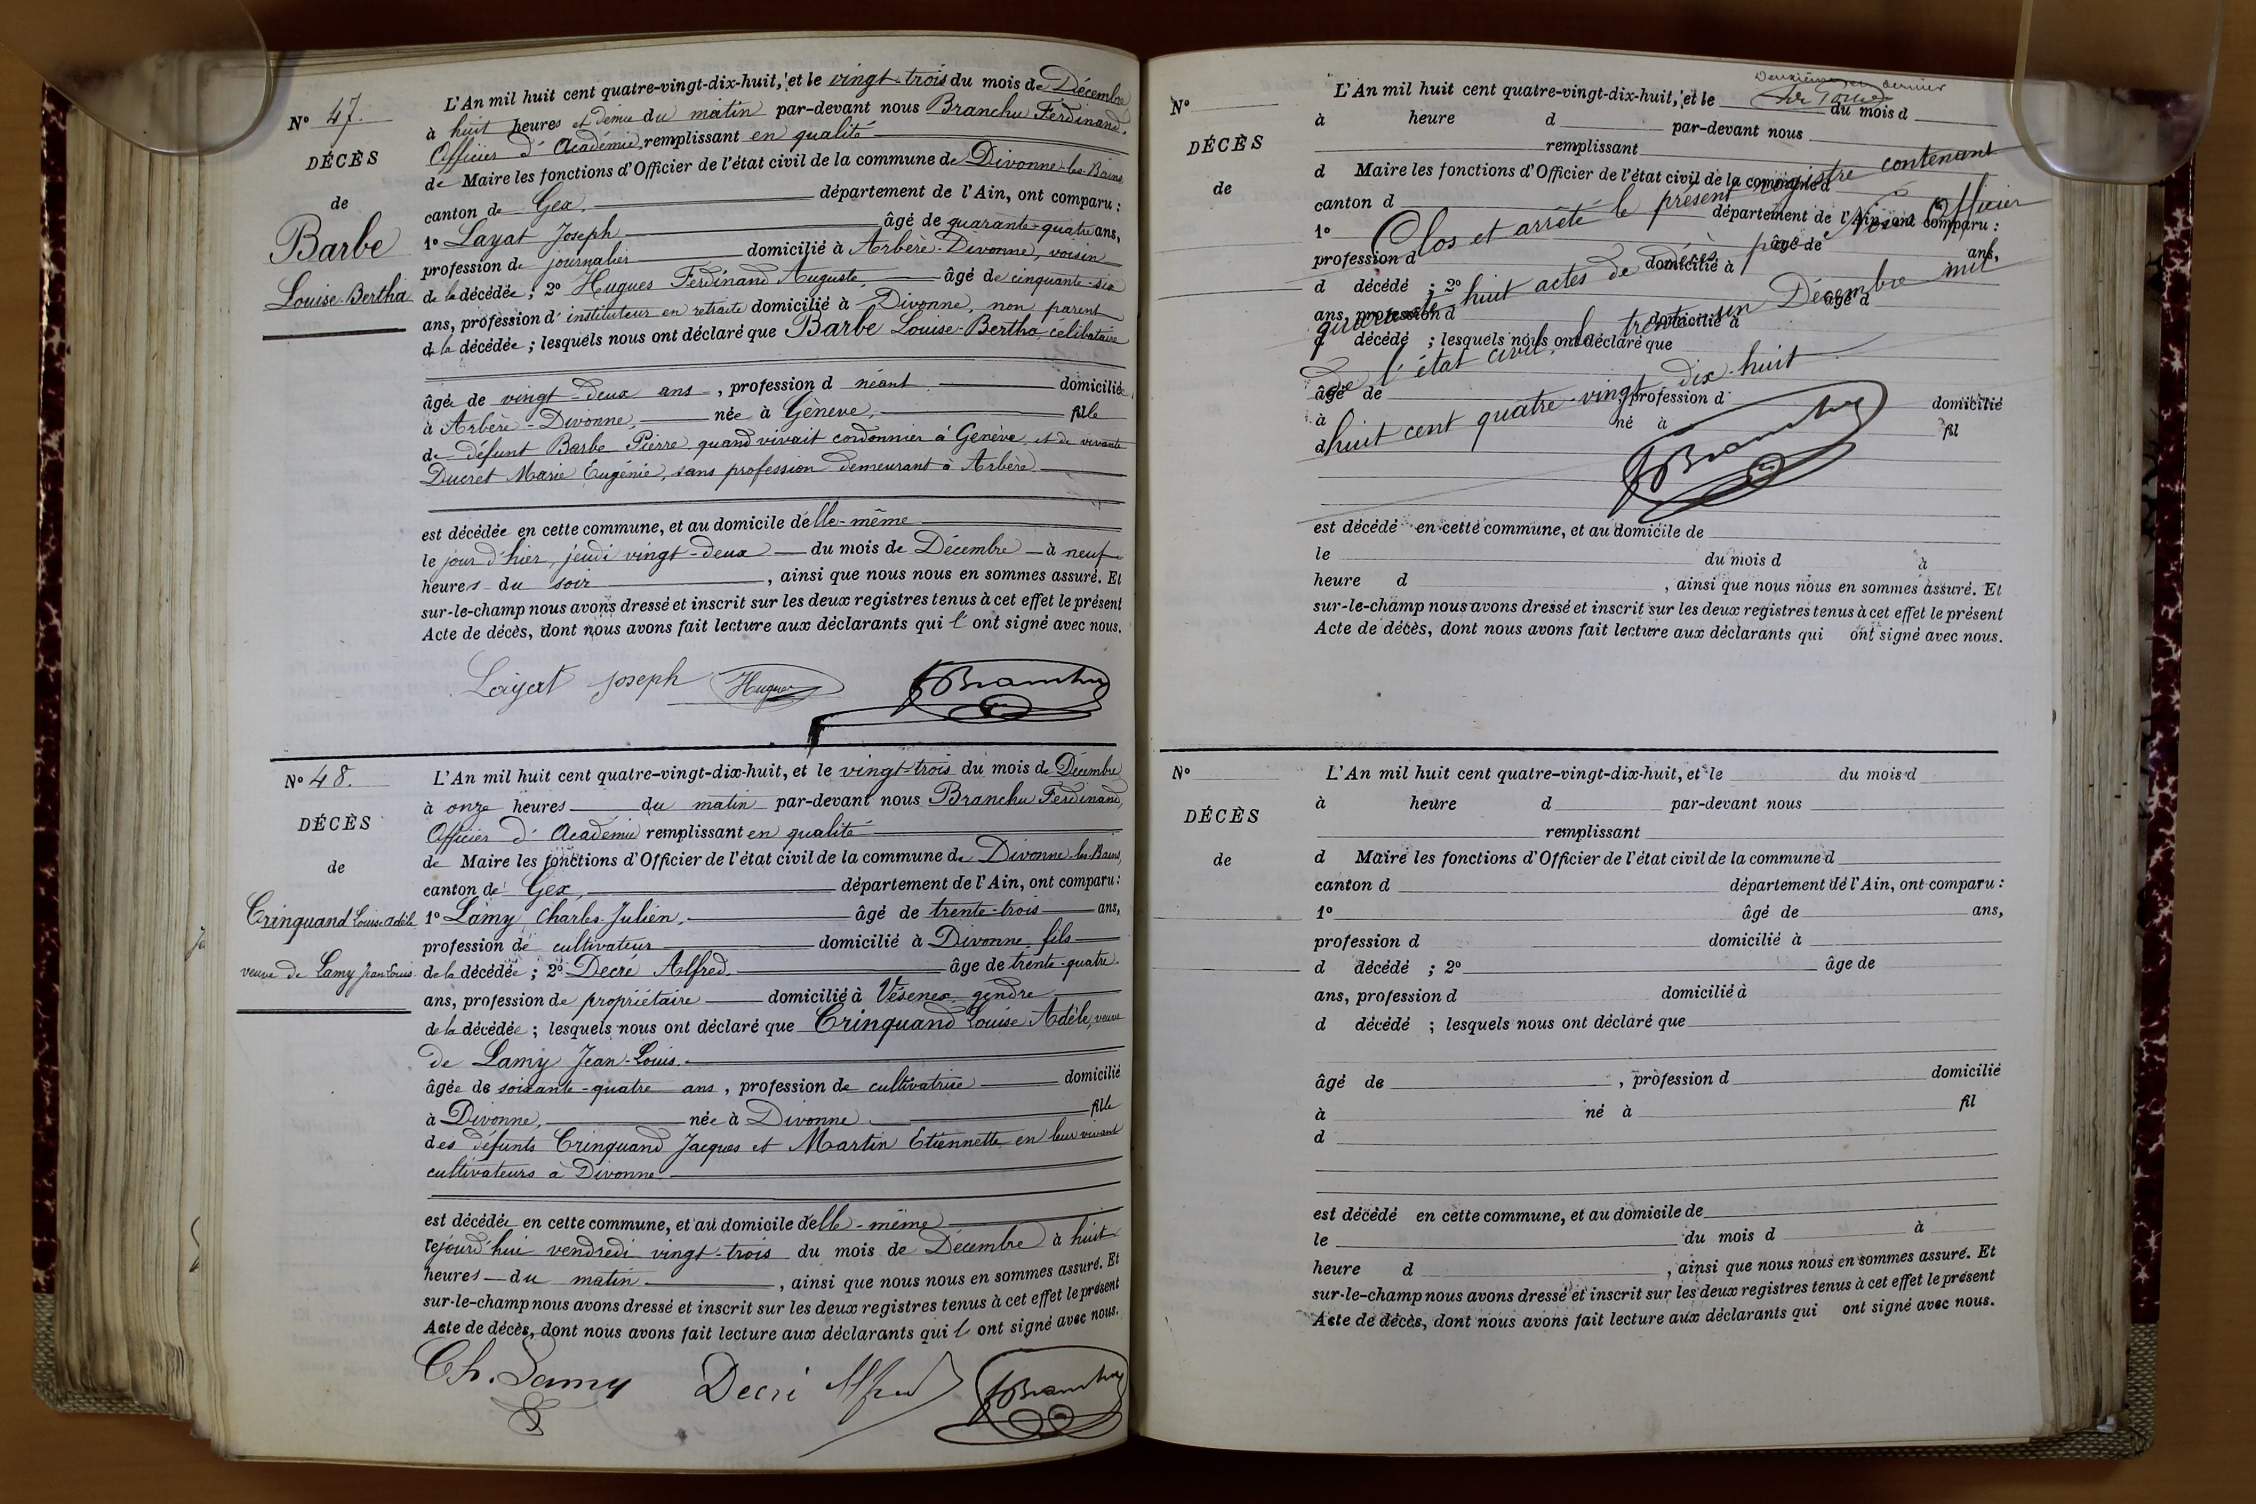 N° 47.
DÉCÈS
de
Barbe
Louise-Bertha
L'An mil huit cent quatre-vingt-dix-huit, et le vingt-trois du mois de Décembre
à huit heures et demie du matin par-devant nous Branchu Ferdinand,
Officier d'Académie, remplissant en qualité
de Maire les fonctions d'Officier de l'état civil de la commune de Divonne-les-Bains
canton de Gex, département de l'Ain, ont comparu :
1° Layat Joseph âgé de quarante-quatre ans,
profession de journalier domicilié à Arbère-Divonne, voisin
de la décédée ; 2° Hugues Ferdinand Auguste, âgé de cinquante-six
ans, profession d'instituteur en retraite domicilié à Divonne, non parent
de la décédée ; lesquels nous ont déclaré que Barbe Louise-Bertha, célibataire
âgée de vingt-deux ans, profession d néant domiciliée
à Arbère-Divonne, née à Genève, fille
de défunt Barbe Pierre quand vivait cordonnier à Genève, et de vivante
Ducret Marie Eugénie, sans profession demeurant à Arbère
est décédée en cette commune, et au domicile d'elle-même
le jour d'hier, jeudi vingt-deux du mois de Décembre à neuf
heures du soir, ainsi que nous nous en sommes assuré. Et
sur-le-champ nous avons dressé et inscrit sur les deux registres tenus à cet effet le présent
Acte de décès, dont nous avons fait lecture aux déclarants qui l'ont signé avec nous.
Layat Joseph Hugues Branchu
N° 48.
DÉCÈS
de
Crinquand Louise Adèle
veuve de Lamy Jean-Louis.
L'An mil huit cent quatre-vingt-dix-huit, et le vingt-trois du mois de Décembre
à onze heures du matin par-devant nous Branchu Ferdinand,
Officier d'Académie remplissant en qualité
de Maire les fonctions d'Officier de l'état civil de la commune de Divonne-les-Bains,
canton de Gex, département de l'Ain, ont comparu :
1° Lamy Charles-Julien, âgé de trente-trois ans,
profession de cultivateur domicilié à Divonne, fils
de la décédée ; 2° Decré Alfred âge de trente-quatre
ans, profession de propriétaire domicilié à Vésenex gendre
de la décédée ; lesquels nous ont déclaré que Crinquand Louise Adèle, veuve
de Lamy Jean-Louis.
âgée de soixante-quatre ans, profession de cultivatrice domicilié
à Divonne, née à Divonne fille
des défunts Crinquand Jacques et Martin Etiennette en leur vivant
cultivateurs à Divonne
est décédée en cette commune, et au domicile d'elle-même
cejourd'hui vendredi vingt-trois du mois de Décembre à huit
heures du matin, ainsi que nous nous en sommes assuré. Et
sur-le-champ nous avons dressé et inscrit sur les deux registres tenus à cet effet le présent
Acte de décès, dont nous avons fait lecture aux déclarants qui l'ont signé avec nous.
Ch. Lamy Decré Alfred Branchu
Deuxième et dernier
N°
DÉCÈS
de
L'An mil huit cent quatre-vingt-dix-huit, et le du mois d
à heure d par-devant nous
remplissant
d Maire les fonctions d'Officier de l'état civil de la commune d
canton d département de l'Ain, ont comparu :
1° âgé de ans,
profession d domicilié à
d décédé ; 2° âgé d
ans, profession d domicilié à
d décédé ; lesquels nous ont déclaré que
âgé de, profession d domicilié
à né à fil
d
Clos et arrêté le présent registre contenant
quarante-huit actes de décès par Nous Officier
de l'état civil, le trente-un Décembre mil
huit cent quatre-vingt-dix-huit
Branchu
est décédé en cette commune, et au domicile de
le du mois d à
heure d, ainsi que nous nous en sommes assuré. Et
sur-le-champ nous avons dressé et inscrit sur les deux registres tenus à cet effet le présent
Acte de décès, dont nous avons fait lecture aux déclarants qui ont signé avec nous.
N°
DÉCÈS
de
L'An mil huit cent quatre-vingt-dix-huit, et le du mois d
à heure d par-devant nous
remplissant
d Maire les fonctions d'Officier de l'état civil de la commune d
canton d département de l'Ain, ont comparu :
1° âgé de ans,
profession d domicilié à
d décédé ; 2° âge de
ans, profession d domicilié à
d décédé ; lesquels nous ont déclaré que
âgé de, profession d domicilié
à né à fil
d
est décédé en cette commune, et au domicile de
le du mois d à
heure d, ainsi que nous nous en sommes assuré. Et
sur-le-champ nous avons dressé et inscrit sur les deux registres tenus à cet effet le présent
Acte de décès, dont nous avons fait lecture aux déclarants qui ont signé avec nous.